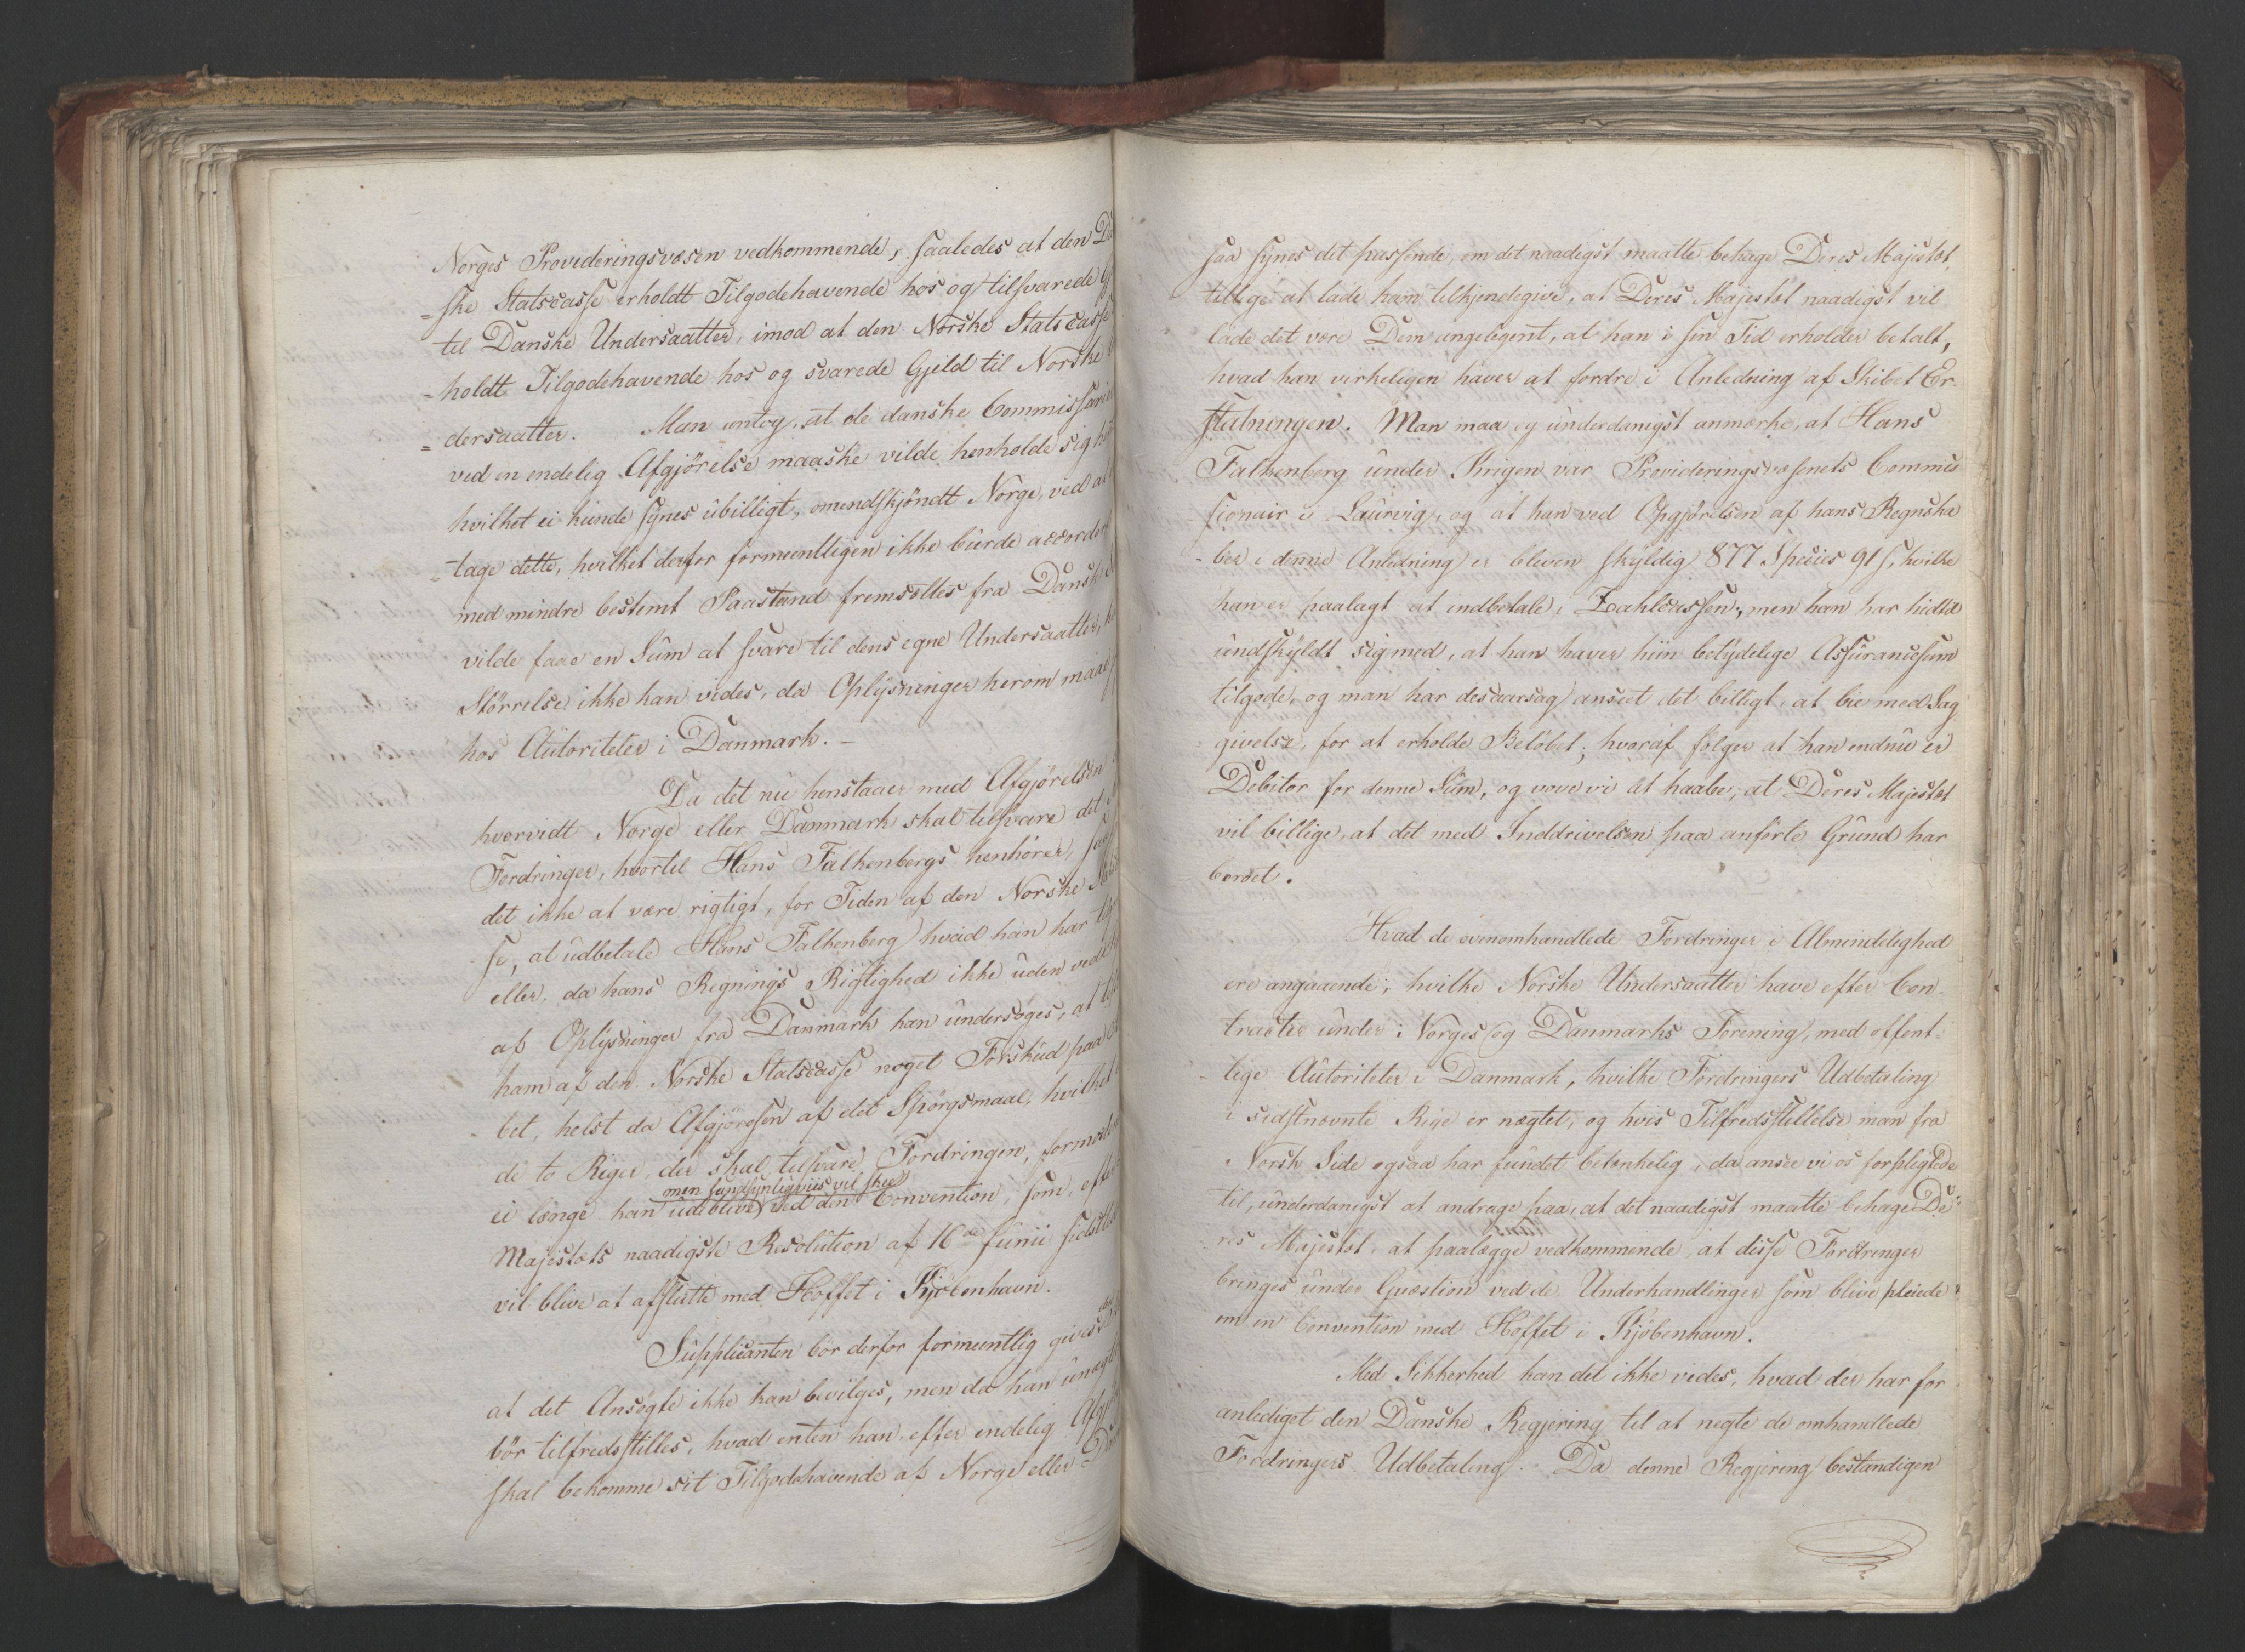 Norges Provideringsvæsen vedkommende, saaledes at den
-ske Statscasse erholdt Tilgodehavende hos og tilsvarede
til Danske Undersaatter, imod at den Norske Statscasse
-holdt Tilgodehavende hos og svarede Gjeld til Norske
=dersaatter. Man antog, at de danske Commissarier
ved en endelig Afgjörelse maaske vilde henholde sig
hvilket ei kunde synes ubilligt, omendskjöndt Norge, ved at
=tage dette, hvilket derfor formeentligen ikke burde accorderes
med mindre bestemt Paastand fremsattes fra Danske
vilde faae en Sum at svare til dens egne Undersaatter,
Störrelse ikke kan vides, da Oplysninger herom maae
hos Autoriteter i Danmark. –
Da det nu henstaaer med Afgjörelsen
hvorvidt Norge eller Danmark skal tilsvare det
Fordringer, hvortil Hans Falkenbergs henhörer,
det ikke at være rigtigt, for Tiden af den Norske
se, at udbetale Hans Falkenberg hvad han har
eller, da hans Regnings Rigtighed ikke uden ved
af Oplysninger fra Danmark kan undersöges, at
ham af den Norske Statscasse noget Forskud paa
-bet, helst da Afgjörelsen af det Spörgsmaal, hvilket
de to Riger, der skal tilsvare Fordringen, formeentlig
ei længe kan udeblive, men sandsynligviis vil skee ved den Convention, som, efter
Majestæts naadigste Resolution af 16de Junii sidstleden
vil blive at afslutte med Hoffet i Kjöbenhavn.
Supplicanten bör derfor formeentlig gives
at det Ansögte ikke kan bevilges, men da han
bör tilfredsstilles, hvad enten han efter endelig
skal bekomme sit Tilgodehavende af Norge eller
saa synes det passende, om det naadigst maatte behage Deres Majestæt,
tillige at lade ham tilkjendegive, at Deres Majestæt naadigst vil
lade det være Dem angelegent, at han i sin Tid erholder betalt,
hvad han virkeligen haver at fordre i Anledning af Skibet Er-
statningen. Man maa og underdanigst anmærke, at Hans
Falkenberg under Krigen var Provideringsvæsenets Commis
sionair i Laurvig, og at han ved Opgjörelsen af hans Regnska
-ber i denne Anledning er bleven skyldig 877 Species 91 s, hvilke
han er paalagt at indbetale i Zahlcassen, men han har hidtil
undskyldt sig med, at han haver hiin betydelige Assurancesum
tilgode, og man har desaarsag anseet det billigt, at bie med Sag
givelse, for at erholde Belöbet; hvoraf fölger at han endnu er
Debitor for denne Sum, og vove vi at haabe, at Deres Majestæt
vil billige, at det med Inddrivelsen paa anförte Grund har
beroet.
Hvad de ovenomhandlede Fordringer i Almindelighed
ere angaaende, hvilke Norske Undersaatter have efter Con-
tracter under Norges og Danmarks Forening, med offent-
lige Autoriteter i Danmark, hvilke Fordringers Udbetaling
i sidstnævnte Rige er nægtet, og hvis Tilfredsstillelse man fra
Norsk Side ogsaa har fundet betænkelig, da ansee vi os forpligtede
til, underdanigst at andrage paa, at det naadigst maatte behage De-
res Majestæt, at paalægge vedkommende, at disse Fordringer
bringes under Qvæstion ved de Underhandlinger som blive pleiede
om en Convention med Hoffet i Kjöbenhavn.
Med Sikkerhed kan det ikke vides, hvad der har for
anlediget den Danske Regjering til at negte de omhandlede
Fordringers Udbetaling. Da denne Regjering bestandigen